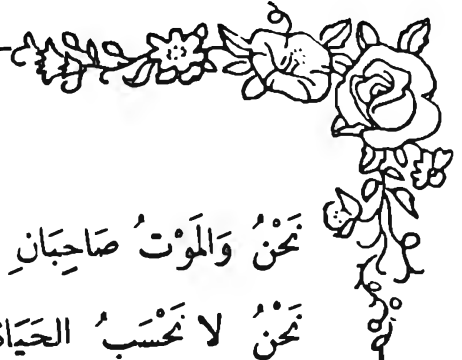 نَحْنُ وَالمَوْتُ صَاحِبَانِ
نَحْنُ لا نَحْسَبُ الحَيَاة